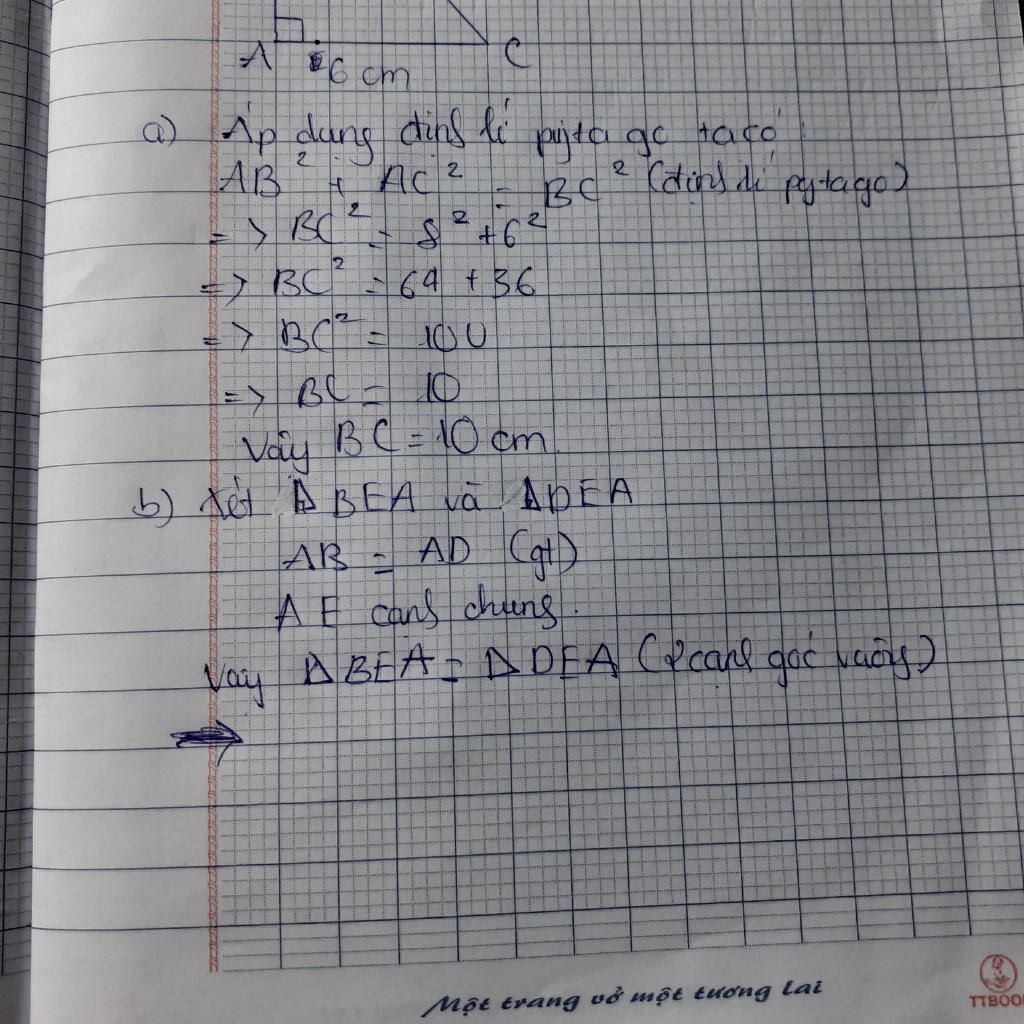 A 6 cm C
a) Áp dụng định lí pytago ta có:
AB² + AC² = BC² (định lí pytago)
=> BC² = 8² + 6²
=> BC² = 64 + 36
=> BC² = 100
=> BC = 10
Vậy BC = 10 cm.
b) Xét Δ BEA và Δ DEA
AB = AD (gt)
AE cạnh chung.
Vậy Δ BEA = Δ DEA (2 cạnh góc vuông)
Một trang vở một tương lai
TTBOO